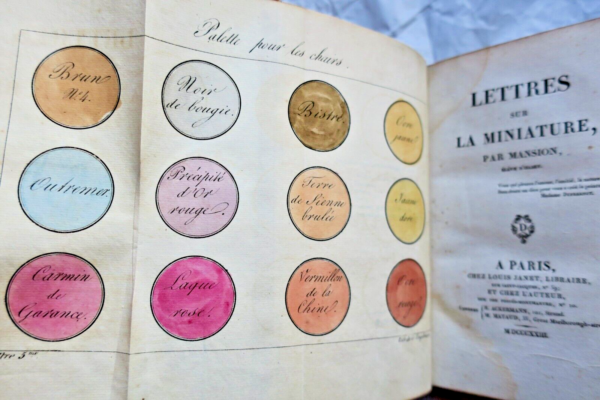 Palette pour les chairs.
Brun
N.4.
Noir
de bougie.
Bistre.
Outremer.
Précipité
d'Or
rouge.
Terre
de Sienne
brulée
Carmin
de
Garance.
Laque
rose.
Vermillon
de la
Chine.
LETTRES
SUR
LA MINIATURE,
PAR MANSION,
A PARIS,
CHEZ LOUIS JANET, LIBRAIRE,
ET CHEZ L'AUTEUR,
MDCCCXXIII.